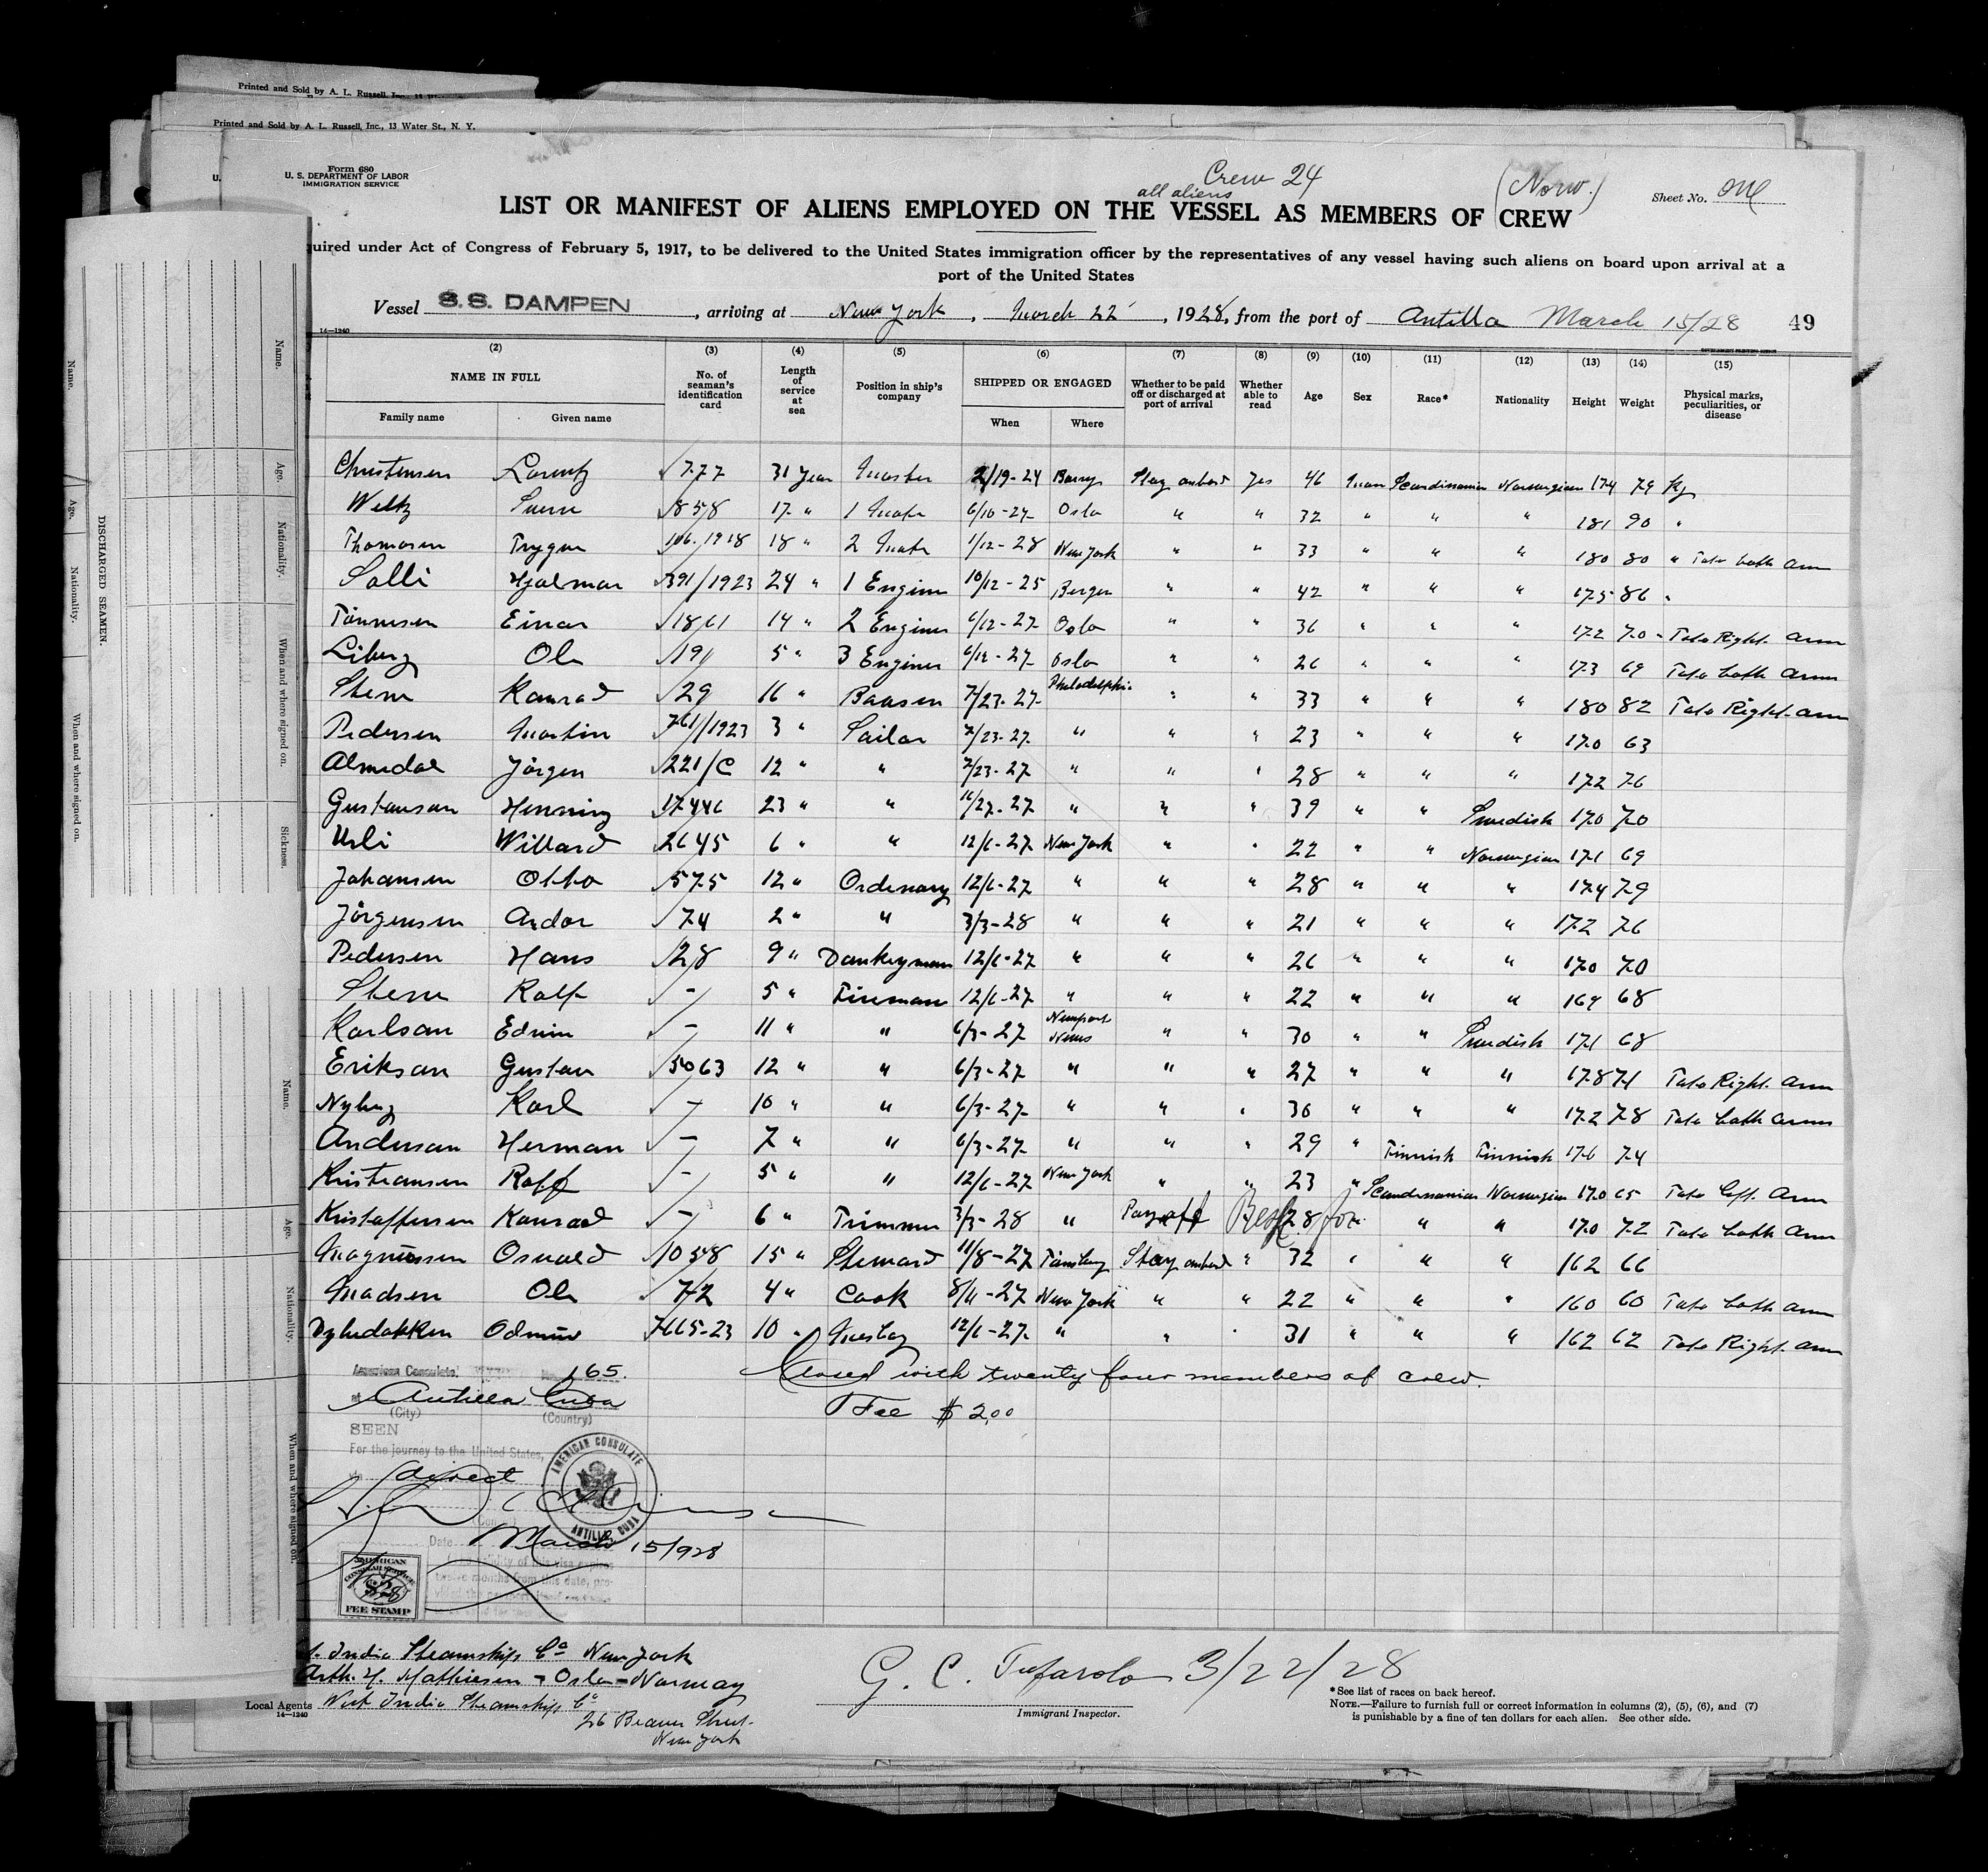 Printed and Sold by A. L. Russell, Inc., 13 Water
Printed and Sold by A. L. Russell, Inc., 13 Water St., N. Y.
Form 680
U. S. DEPARTMENT OF LABOR
IMMIGRATION SERVICE
Crew 24
all aliens
(Norw.)
Sheet No. One
LIST OR MANIFEST OF ALIENS EMPLOYED ON THE VESSEL AS MEMBERS OF CREW
quired under Act of Congress of February 5, 1917, to be delivered to the United States immigration officer by the representatives of any vessel having such aliens on board upon arrival at a
port of the United States
Vessel S.S. DAMPEN, arriving at New York, March 22, 1928, from the port of Antilla March 15/28 49
14—1240
(2) (3) (4) (5) (6) (7) (8) (9) (10) (11) (12) (13) (14) (15)
NAME IN FULL No. of seaman's identification card Length of service at sea Position in ship's company SHIPPED OR ENGAGED Whether to be paid off or discharged at port of arrival Whether able to read Age Sex Race* Nationality Height Weight Physical marks, peculiarities, or disease
Family name Given name When Where
Christensen Lorentz 777 31 year Master 2/19-24 Barry Stay onbord Yes 46 Man Scandinavian Norwegian 174 79 kg
Weltz 858 17 " 1 Mate 6/10-27 Oslo " " 32 " " " 181 90 "
Thomasen Trygve 106.1918 18 " 2 Mate 1/12-28 New York " " 33 " " " 180 80 " Tato both Arm
Solli Hjalmar 391/1923 24 " 1 Enginer 10/12-25 Bergen " " 42 " " " 175 86 "
Tönnesen Einar 1861 14 " 2 Enginer 6/12-27 Oslo " " 36 " " " 172 70 " Tato Right. Arm
Liberg Ole 191 5 " 3 Enginer 6/12-27 Oslo " " 26 " " " 173 69 Tato both Arm
Stene Konrad 29 16 " Baasen 7/23-27 Philadelphia " " 33 " " " 180 82 Tato Right. Arm
Pedersen Martin 761/1923 3 " Sailor 7/23-27 " " " 23 " " " 170 63
Almedal Jörgen 221/C 12 " " 7/23-27 " " " 28 " " " 172 76
Gustavson Henning 17446 23 " " 27-27 " " " 39 " " Swedish 170 70
Usli Willard 2645 6 " " 12/6-27 New York " " 22 " " Norwegian 171 69
Johansen Otto 575 12 " Ordenary 12/6-27 " " " 28 " " " 174 79
Jörgensen Ardor 74 2 " " 3/3-28 " " " 21 " " " 172 76
Pedersen Hans 28 9 " Donkeyman 12/6-27 " " " 26 " " " 170 70
Stene Rolf - 5 " Fireman 12/6-27 " " " 22 " " " 169 68
Karlson Edvin - 11 " " 6/3-27 Newport News " " 30 " " Swedish 171 68
Erikson Gustav 5063 12 " " 6/3-27 " " " 27 " " " 178 71 Tato Right. Arm
Nyberg Karl - 10 " " 6/3-27 " " " 30 " " " 172 78 Tato both Arms
Anderson Herman - 7 " " 6/3-27 " " " 29 " Finnish Finnish 176 74
Kristiansen Rolf - 5 " " 12/6-27 New York " " 23 " Scandinavian Norwegian 170 65 Tato left Arm
Kristoffersen Konrad - 6 " Trimmer 3/3-28 " Pay off 28 " " 170 72 Tato both Arm
Magnussen Osvald 1058 15 " Steward 11/8-27 Tönsberg Stay onbord " 32 " " " 162 66
Madsen Ole 72 4 " Cook -27 New York " " 22 " " " 160 60 Tato both Arm
7665-23 10 " Mesboy 12/6-27 " " " 31 " " " 162 62 Tato Right. Arm
Closed with twenty four members of crew.
Fee $ 2.00
American Consulate 165.
at Antilla Cuba
(City) (Country)
SEEN
For the journey to the United States,
via direct
AMERICAN CONSULATE
ANTILLA CUBA
Date March 15/928
AMERICAN
CONSULAR SERVICE
$2
FEE STAMP
India Steamship Co New York
Arth. H. Mathiesen - Oslo - Norway
Local Agents West India Steamship Co
14—1240
26 Beaver Street.
New York
G. C. Tufarolo 3/22/28
Immigrant Inspector.
*See list of races on back hereof.
NOTE.—Failure to furnish full or correct information in columns (2), (5), (6), and (7)
is punishable by a fine of ten dollars for each alien. See other side.
DISCHARGED SEAMEN.
Name. Age. Nationality. When and where signed on. Sickness.
Name. Age. Nationality. When and where signed on.
Name. Age. Nationality. When and where signed on.